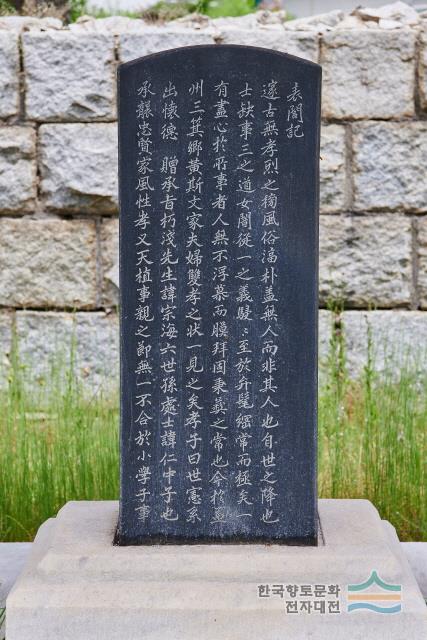 表閭記
邃古無孝烈之獨風俗淳朴盖無人而非其人也自世之降也
士缺事三之道女闇從一之義駸〻至於弁髦綱常而極矣一
有盡心於所事者人無不浮慕而膜拜固秉彛之常也今於
州三箕鄉黃斯文家夫婦雙孝之狀一見之矣孝子曰世憲系
出懷德 贈承旨朽淺先生諱宗海六世孫處士諱仁中子也
承襲忠賢家風性孝又天植事親之節無一不合於小學子事
한국향토문화
전자대전